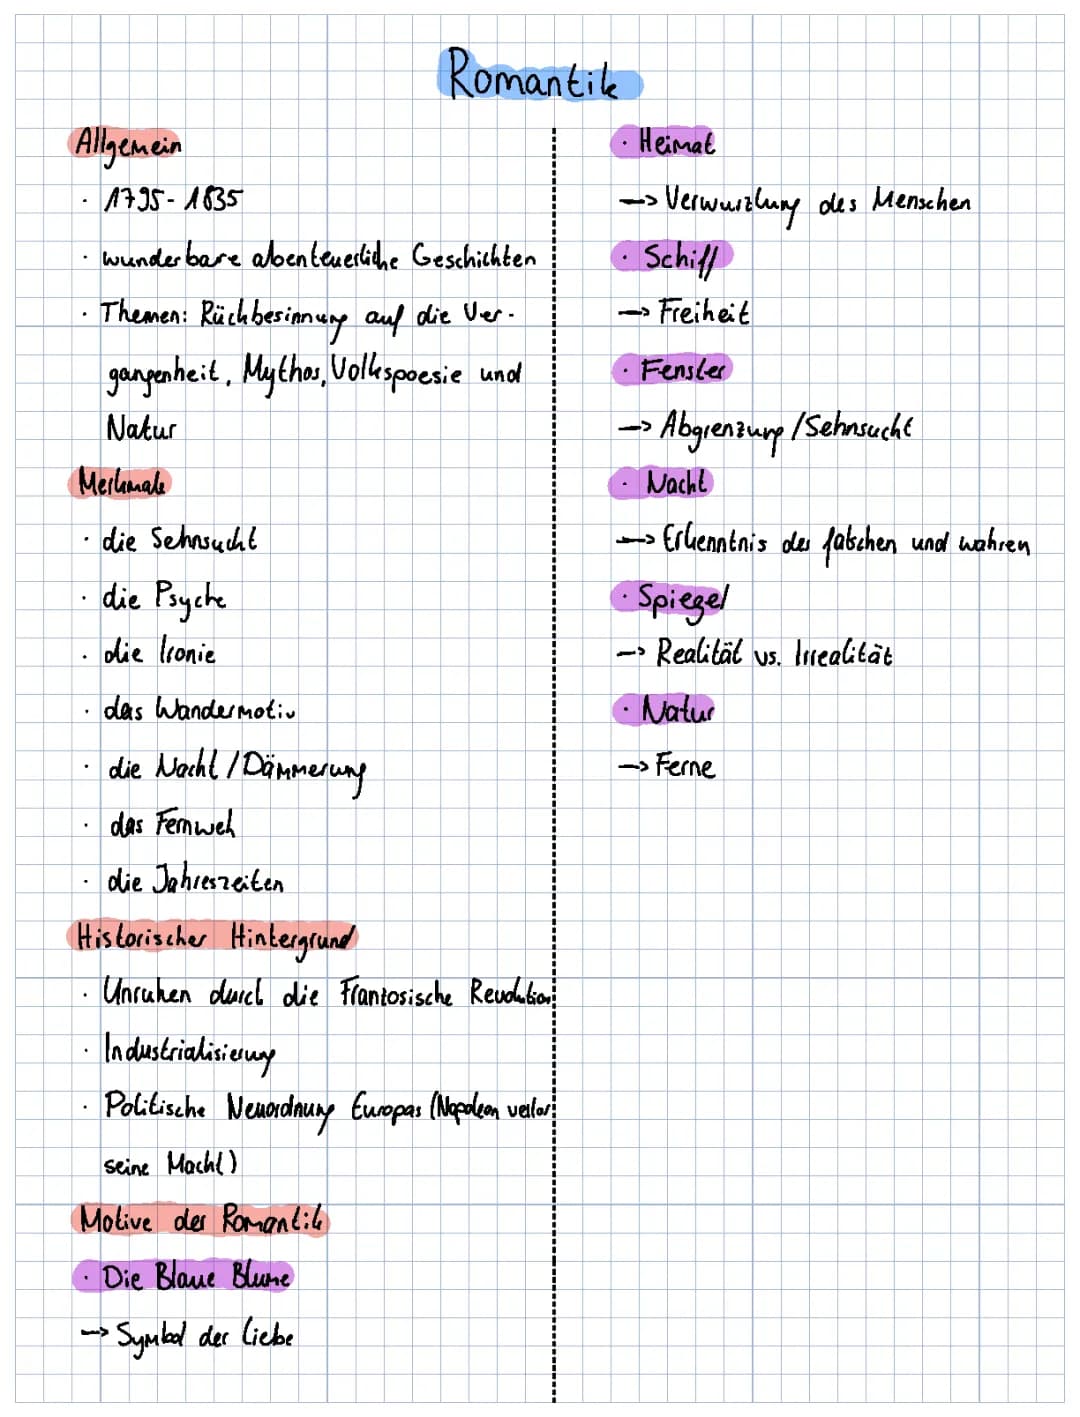 Romantik
Allgemein
· 1795-1835
· wunderbare abenteuerliche Geschichten
· Themen: Rückbesinnung auf die Ver-
gangenheit, Mythos, Volkspoesie und
Natur
Merkmale
· die Sehnsucht
· die Psyche
· die Ironie
· das Wandermotiv
· die Nacht/Dämmerung
· das Fernweh
· die Jahreszeiten
Historischer Hintergrund
· Unruhen durch die Französische Revolution
· Industrialisierung
· Politische Neuordnung Europas (Napoleon verlor
seine Macht)
Motive der Romantik
· Die Blaue Blume
--> Symbol der Liebe
· Heimat
--> Verwurzlung des Menschen
· Schiff
--> Freiheit
· Fenster
--> Abgrenzung/Sehnsucht
· Nacht
--> Erkenntnis des falschen und wahren
· Spiegel
--> Realität vs. Irrealität
· Natur
--> Ferne